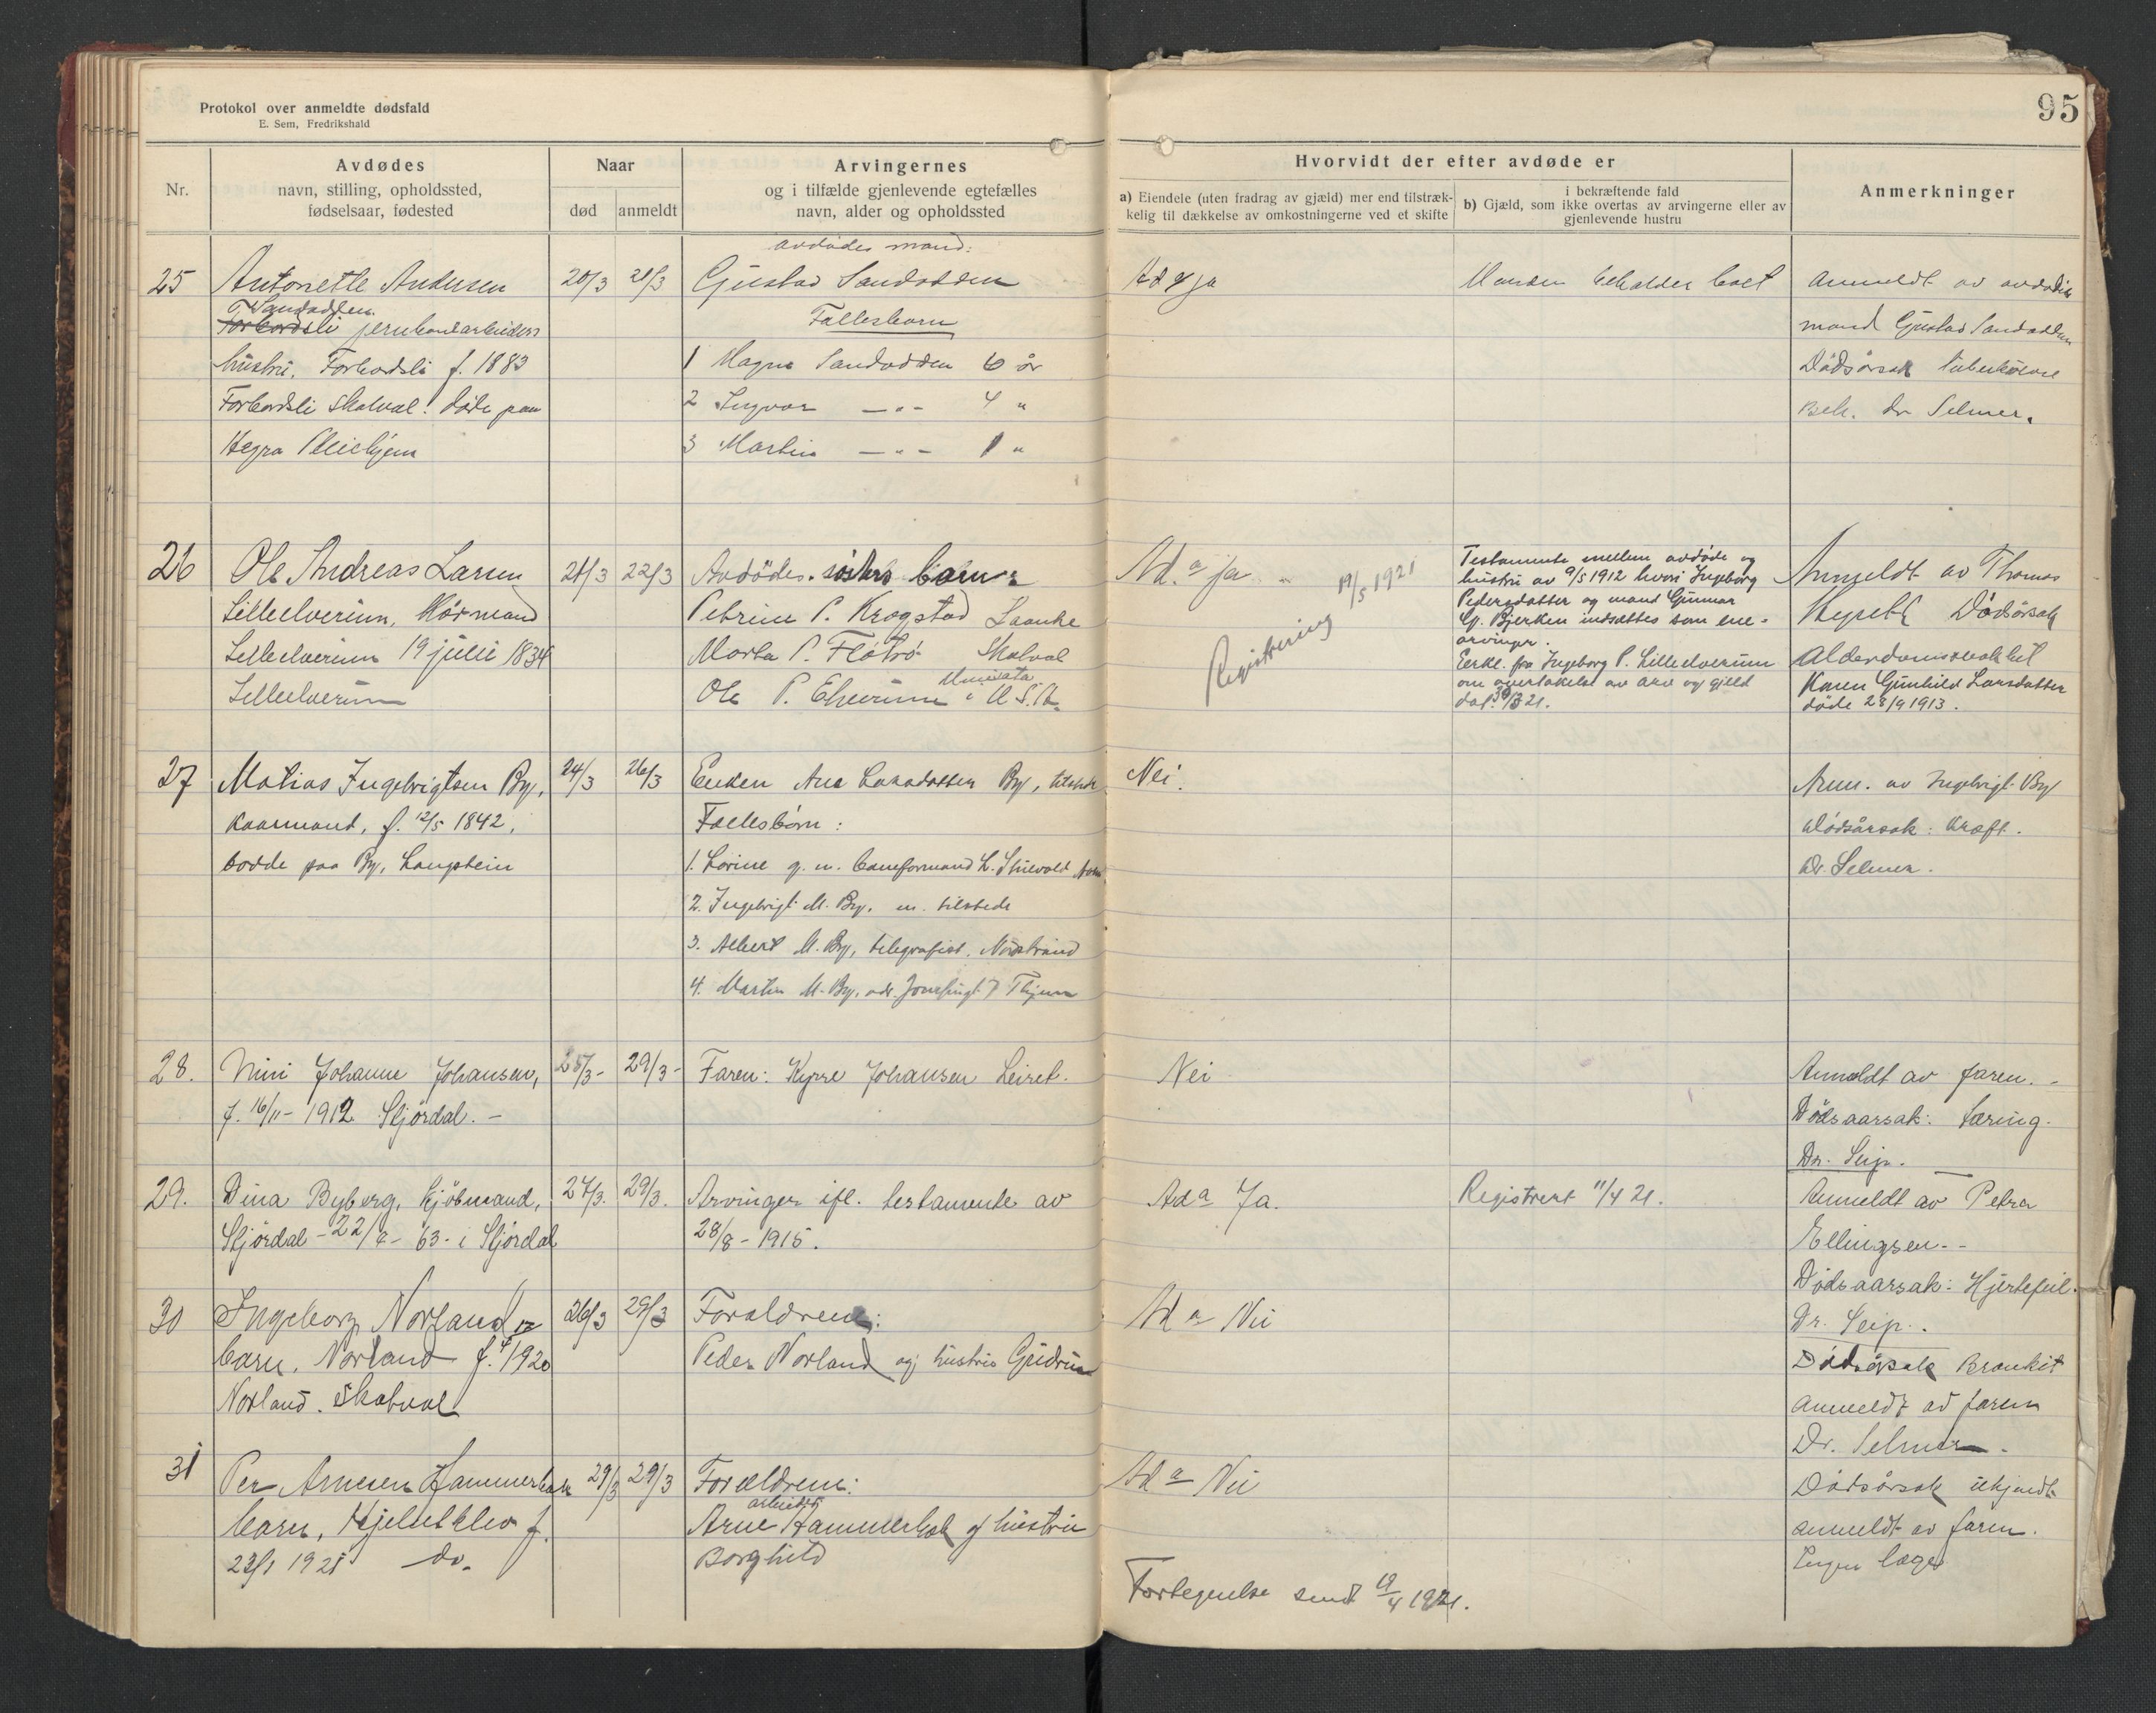 Protokol over anmeldte dødsfald
E. Sem, Fredrikshald
95
Nr.
Avdødes
navn, stilling, opholdssted,
fødselsaar, fødested
Naar
død
anmeldt
Arvingernes
og i tilfælde gjenlevende egtefælles
navn, alder og opholdssted
Hvorvidt der efter avdøde er
a) Eiendele (uten fradrag av gjæld) mer end tilstræk-
kelig til dækkelse av omkostningerne ved et skifte
i bekræftende fald
b) Gjæld, som ikke overtas av arvingerne eller av
gjenlevende hustru
Anmerkninger
25
Antonette Andersen
Sandodden
Forbordsli jernbanearbeiders
hustru. Forbordsli f. 1883
Forbordsli Skatval. døde paa
Hegra Pleiehjem
20/3
21/3
avdødes mand:
Gustav Sandodden
Fællesbarn
1 Magne Sandodden 6 år
2 Ingvar — " — 4 "
3 Martin — " — 1 "
Ad a ja
Manden beholder boet
Anmeldt av avdødes
mand Gustav Sandodden
Dødsårsak tuberkulose
Beh. dr Selmer.
26
Ole Andreas Larsen
Lilleelverum, Kårmand
Lilleelverum 19 juli 1834
Lilleelverum
21/3
22/3
Avdødes søsters barn:
Petrine P. Krogstad Laanke
Marta P. Flåtrø Skatval
Ole P. Elverum U.S.A.
Ad. a ja
Registrering 19/5 1921
Testamente mellem avdøde og
hustru av 9/5 1912 hvori Ingeborg
Pedersdatter og mand Gunnar
G. Bjerken indsættes som ene-
arvinger.
Erkl. fra Ingeborg P. Lilleelverum
om overtakelse av arv og gjeld
dat. 30/3 21.
Anmeldt av Thomas
Dødsårsak
Alderdomssvakhet
Karen Gunhild Larsdatter
døde 23/9 1913.
27
Matias Ingebrigtsen By,
Kaarmand, f. 12/5 1842,
bodde paa By, Langstein
24/3
26/3
Enken Ane Larsdatter By, tilstede
Fællesbørn:
1. Lorine g. m. baneformand L.
2. Ingebrigt M. By, m. tilstede
3. Albert M. By, telegrafist, Nordstrand
4. Martin M. By, adr. 7 Thjem
Nei.
Anm. av Ingebrigt By
Dødsårsak: Kræft.
Dr. Selmer.
28.
Nini Johanne Johansen,
f. 16/11 - 1912 Stjørdal. -
25/3 -
29/3 -
Faren: Kyrre Johansen Leiret.
Nei
Anmeldt av faren. -
Dødsaarsak: Tæring.
Dr. Seip. -
29.
Dina Byberg, kjøbmand,
Stjørdal - 22/9 - 63 - i Stjørdal
27/3.
29/3.
Arvinger ifl. testamente av
28/8 - 1915.
Ad a Ja.
Registrert 11/4 21.
Anmeldt av Petra
Ellingsen. -
Dødsaarsak: Hjertefeil.
Dr. Seip.
30
Ingeborg Norland
barn, Norland f. 1920
Norland. Skatval
26/3
29/3
Forældrene:
Peder Norland og hustru Gudrun
Ad a Nei
Dødsårsak Bronkit
anmeldt av faren
Dr. Selmer.
31
Per Arnesen Hammerbak
barn, f.
23/1 1921 do.
29/3
29/3
Forældrene:
arbeider
Arne Hammerbak og hustru
Borghild
Ad a Nei
Dødsårsak ukjendt
anmeldt av faren.
Ingen læge
Fortegnelse sendt 19/4 1921.